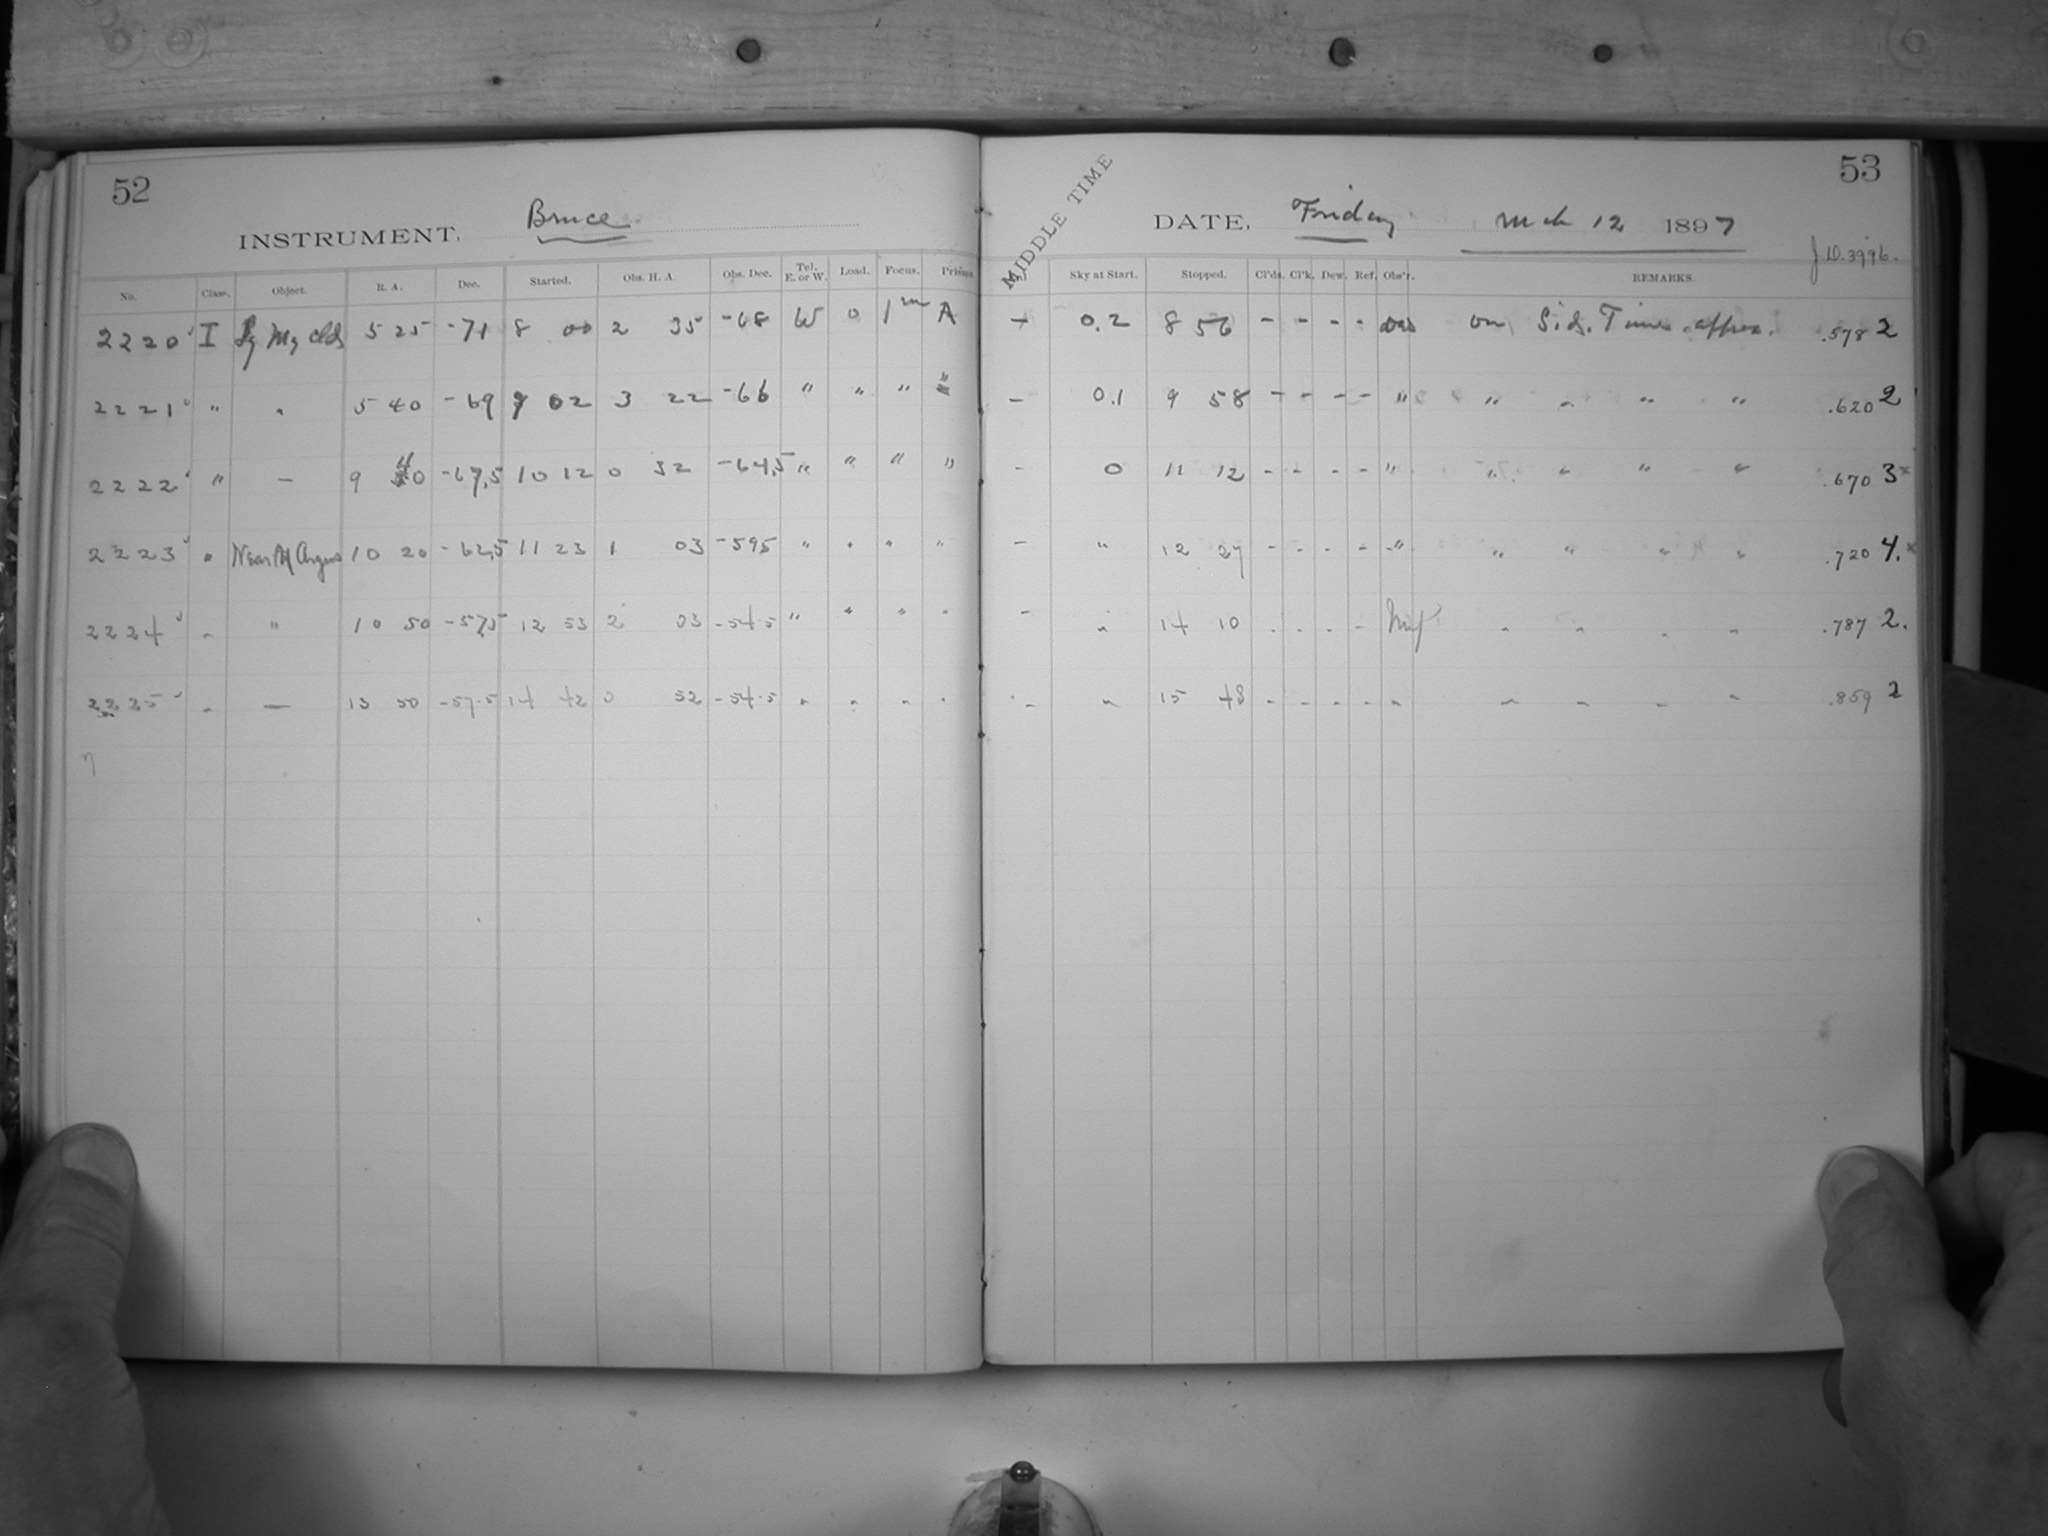 52
INSTRUMENT, Bruce
No. Class. Object. R. A. Dec. Started. Obs. H. A. Obs. Dec. Tel. E. or W. Load. Focus. Prisms.
2220 I Lg Mg clds 5 25 -71 8 00 2 35 -68 W 0 1m A
2221 " " 5 40 -69 9 02 3 22 -66 " " " "
2222 " — 9 40 -67,5 10 12 0 32 -64,5 " " " "
2223 " Near η Argus 10 20 -62,5 11 23 1 03 -595 " " " "
2224 " " 10 50 -575 12 53 2 03 -54.5 " " " "
2225 " — 13 50 -57.5 14 42 0 52 -54.5 " " " "
53
MIDDLE TIME
DATE, Friday Mch 12 1897
J.D. 3996.
Sky at Start. Stopped. Cl'ds. Cl'k. Dew. Ref. Obs'r. REMARKS.
- 0.2 8 56 - - - - on Sid. Time approx. .578 2
- 0.1 9 58 - - - - " " " " " .620 2
- 0 11 12 - - - - " " " " " .670 3
- " 12 27 - - - - " " " " " .720 4.
- " 14 10 - - - - " " " " .787 2.
- " 15 48 - - - - " " " " " .859 2